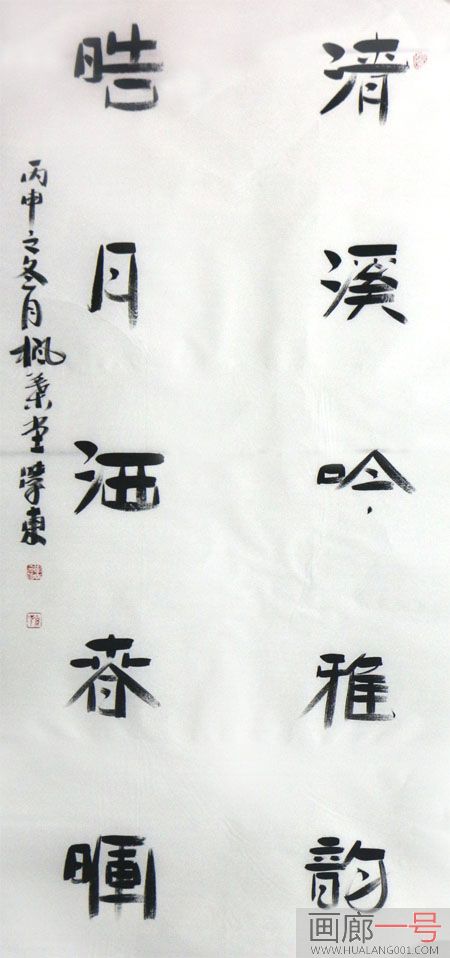 清溪吟雅韵
晧月洒春暉
丙申之冬月枫葉堂学東
画廊一号
WWW.HUALANG001.COM